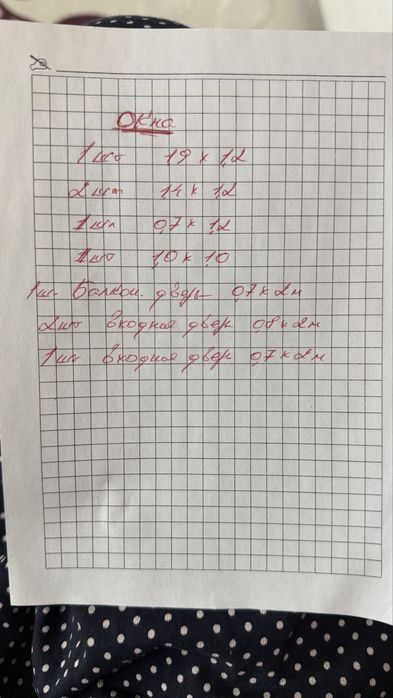 Окна
1 шт 1,9 х 1,2
2 шт 1,4 х 1,2
1 шт 0,7 х 1,2
1 шт 1,0 х 1,0
1 шт Балкон. дверь 0,7 х 2 м
2 шт входная двер 0,8 х 2 м
1 шт входная двер 0,7 х 2 м